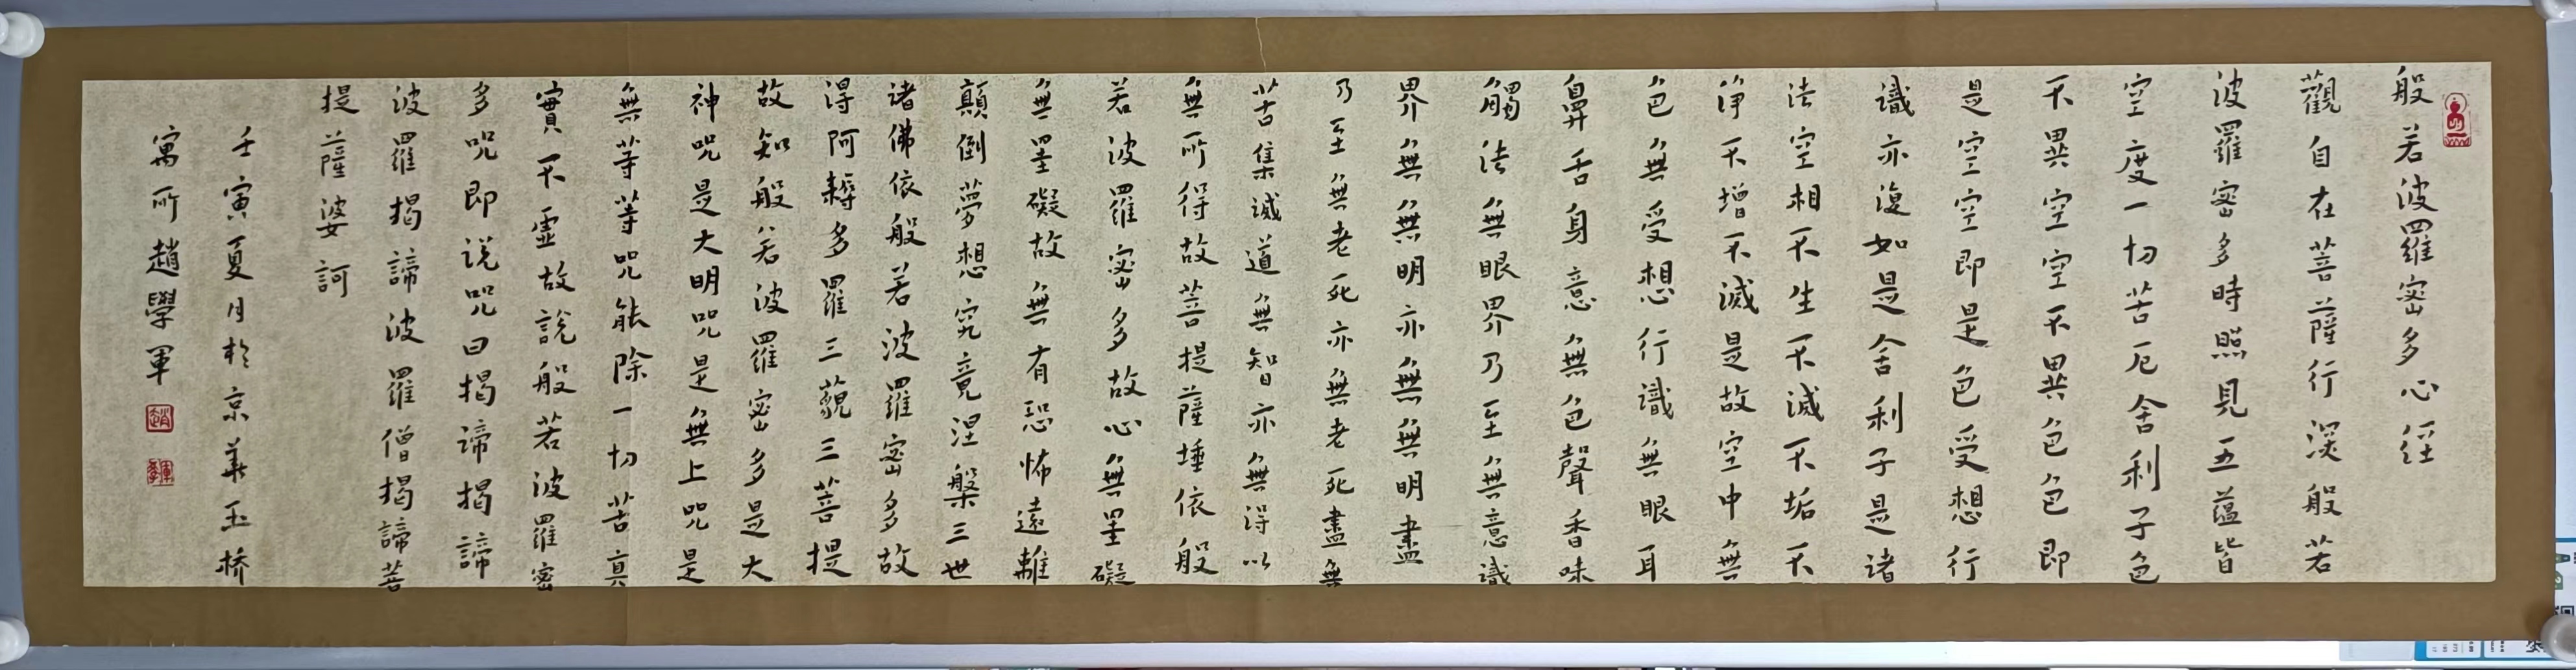 般若波羅密多心經
觀自在菩薩行深般若
波羅密多時照見五蘊皆
空度一切苦厄舍利子色
不異空空不異色色即
是空空即是色受想行
識亦復如是舍利子是諸
法空相不生不滅不垢不
淨不增不滅是故空中無
色無受想行識無眼耳
鼻舌身意無色聲香味
觸法無眼界乃至無意識
界無無明亦無無明盡
乃至無老死亦無老死盡無
苦集滅道無智亦無得以
無所得故菩提薩埵依般
若波羅密多故心無罣礙
無罣礙故無有恐怖遠離
顛倒夢想究竟涅槃三世
諸佛依般若波羅密多故
得阿耨多羅三藐三菩提
故知般若波羅密多是大
神咒是大明咒是無上咒是
無等等咒能除一切苦真
實不虛故說般若波羅密
多咒即说咒曰揭諦揭諦
波羅揭諦波羅僧揭諦菩
提薩婆訶
壬寅夏月於京華玉橋
寓所趙學軍
趙
學軍